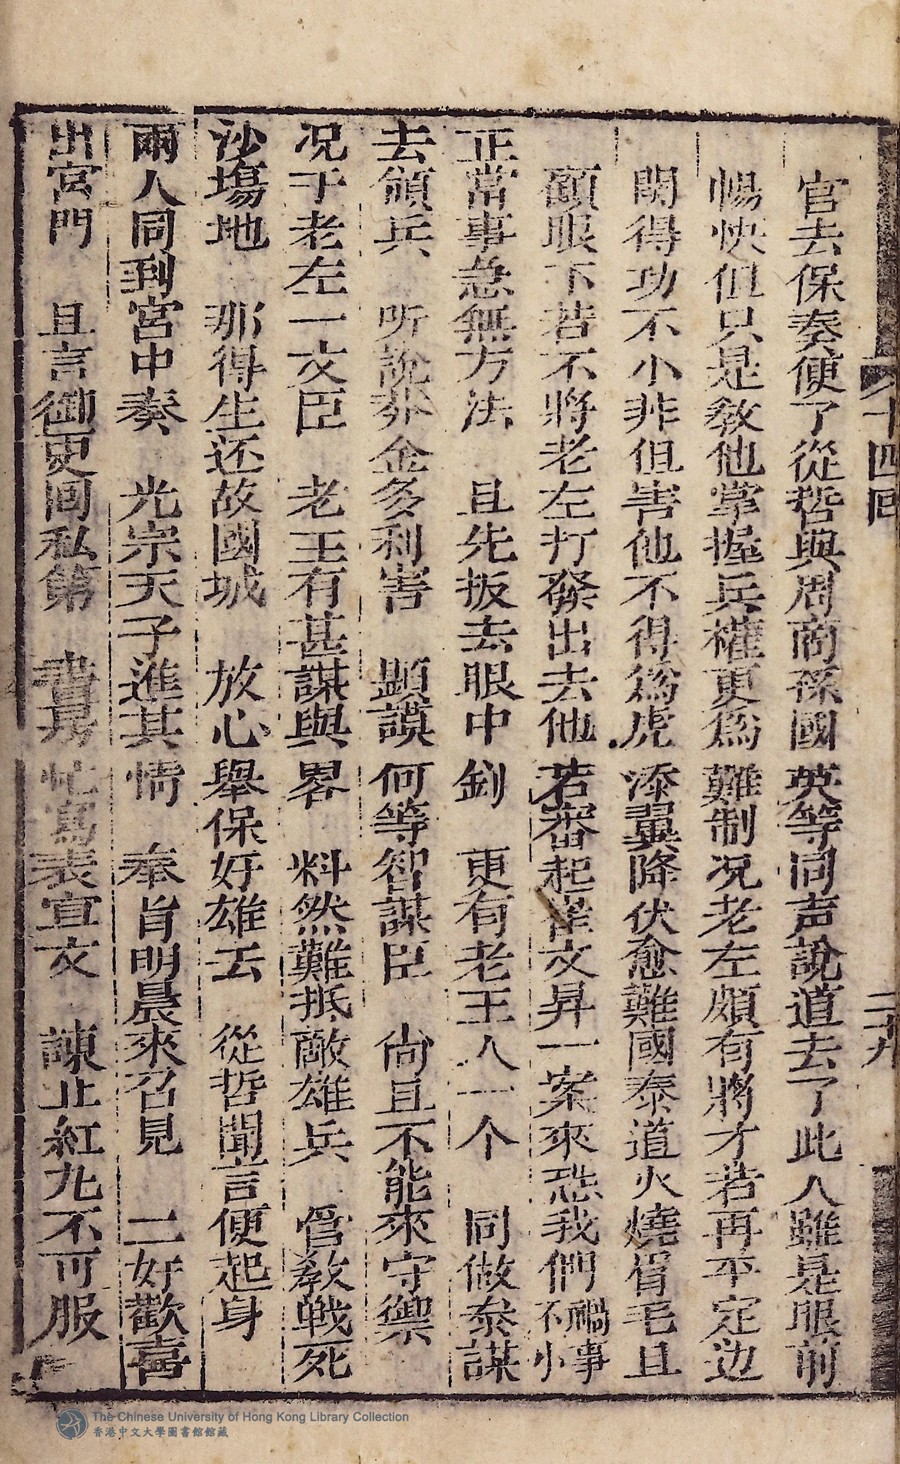 十四回
二十九
官去保奏便了從哲與周商孫國英等同声說道去了此人雖是眼前
暢快但只是敎他掌握兵權更為難制况老左頗有將才若再平定边
関得功不小非但害他不得為虎添翼降伏愈難國泰道火燒眉毛且
顧眼下若不將老左打發出去他若審起崔文昇一案來恐我們禍事不小
正當事急無方法 且先扳去眼中釗 更有老王人一个 同做叅謀
去領兵 听說芥金多利害 顯謨何等智謀臣 尙且不能來守禦
况于老左一文臣 老王有甚謀與畧 料然難抵敵雄兵 爲敎戦死
沙塲地 那得生还故國城 放心舉保好雄去 從哲聞言便起身
兩人同到宮中奏 光宗天子進其情 奉旨明晨來召見 二奸歡喜
出宮門 且言御吏囘私第 書房忙寫表宣文 諫止紅九不可服
The Chinese University of Hong Kong Library Collection
香港中文大學圖書館館藏